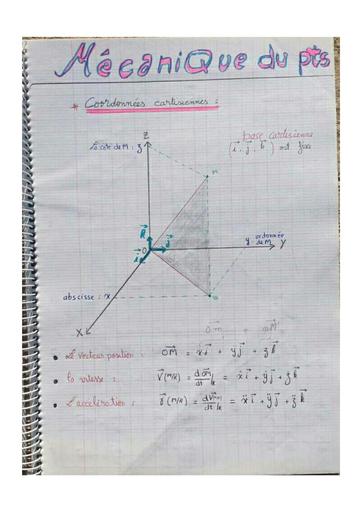 Mécanique du pts
* Coordonnées cartésiennes :
base cartésienne
(i⃗, j⃗, k⃗) est fixe
Z
La côte de M : z
M
k⃗
j⃗
i⃗
O
y : ordonnée de M
Y
abscisse : x
X
Om + mM
• Le vecteur position : OM⃗ = x i⃗ + y j⃗ + z k⃗
• la vitesse : V⃗(M/R) = dOM⃗/dt /R = ẋ i⃗ + ẏ j⃗ + ż k⃗
• L'accélération : γ⃗(M/R) = dV⃗(M/R)/dt /R = ẍ i⃗ + ÿ j⃗ + z̈ k⃗